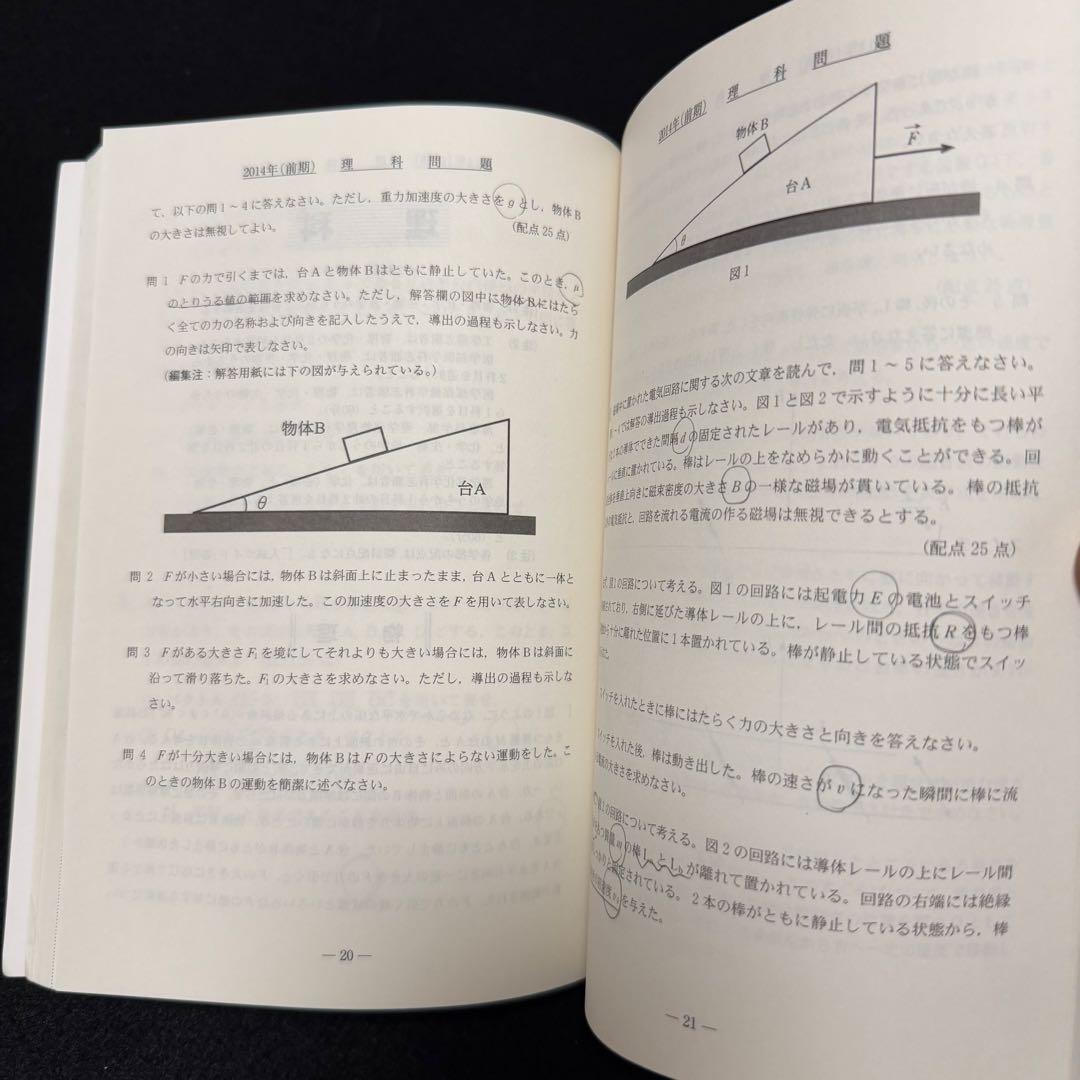 2014年(前期) 理科問題
て，以下の問1～4に答えなさい。ただし，重力加速度の大きさをgとし，物体B
の大きさは無視してよい。
(配点25点)
問1 Fの力で引くまでは，台Aと物体Bはともに静止していた。このとき，μ
のとりうる値の範囲を求めなさい。ただし，解答欄の図中に物体Bにはたら
く全ての力の名称および向きを記入したうえで，導出の過程も示しなさい。力
の向きは矢印で表しなさい。
(編集注：解答用紙には下の図が与えられている。)
物体B
台A
θ
問2 Fが小さい場合には，物体Bは斜面上に止まったまま，台Aとともに一体と
なって水平右向きに加速した。この加速度の大きさをFを用いて表しなさい。
問3 Fがある大きさF₁を境にしてそれよりも大きい場合には，物体Bは斜面に
沿って滑り落ちた。F₁の大きさを求めなさい。ただし，導出の過程も示しな
さい。
問4 Fが十分大きい場合には，物体BはFの大きさによらない運動をした。こ
のときの物体Bの運動を簡潔に述べなさい。
― 20 ―
2014年(前期) 理科問題
物体B
台A
F
θ
図1
置かれた電気回路に関する次の文章を読んで，問1～5に答えなさい。
では解答の導出過程も示しなさい。図1と図2で示すように十分に長い平
本の導体でできた間隔dの固定されたレールがあり，電気抵抗をもつ棒が
に垂直に置かれている。棒はレールの上をなめらかに動くことができる。回
垂直上向きに磁束密度の大きさBの一様な磁場が貫いている。棒の抵抗
電気抵抗と，回路を流れる電流の作る磁場は無視できるとする。
(配点25点)
図1の回路について考える。図1の回路には起電力Eの電池とスイッチ
されており，右側に延びた導体レールの上に，レール間の抵抗Rをもつ棒
から十分に離れた位置に1本置かれている。棒が静止している状態でスイッ
た。
スイッチを入れたときに棒にはたらく力の大きさと向きを答えなさい。
イッチを入れた後，棒は動き出した。棒の速さがvになった瞬間に棒に流
の大きさを求めなさい。
の回路について考える。図2の回路には導体レールの上にレール間
が離れて置かれている。回路の右端には絶縁
固定されている。2本の棒がともに静止している状態から，棒
を与えた。
― 21 ―